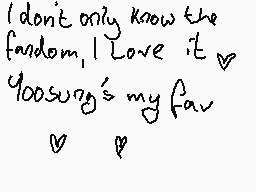 I don't only know the
fandom, I Love it ♡
Yoosung's my fav
♡ ♡